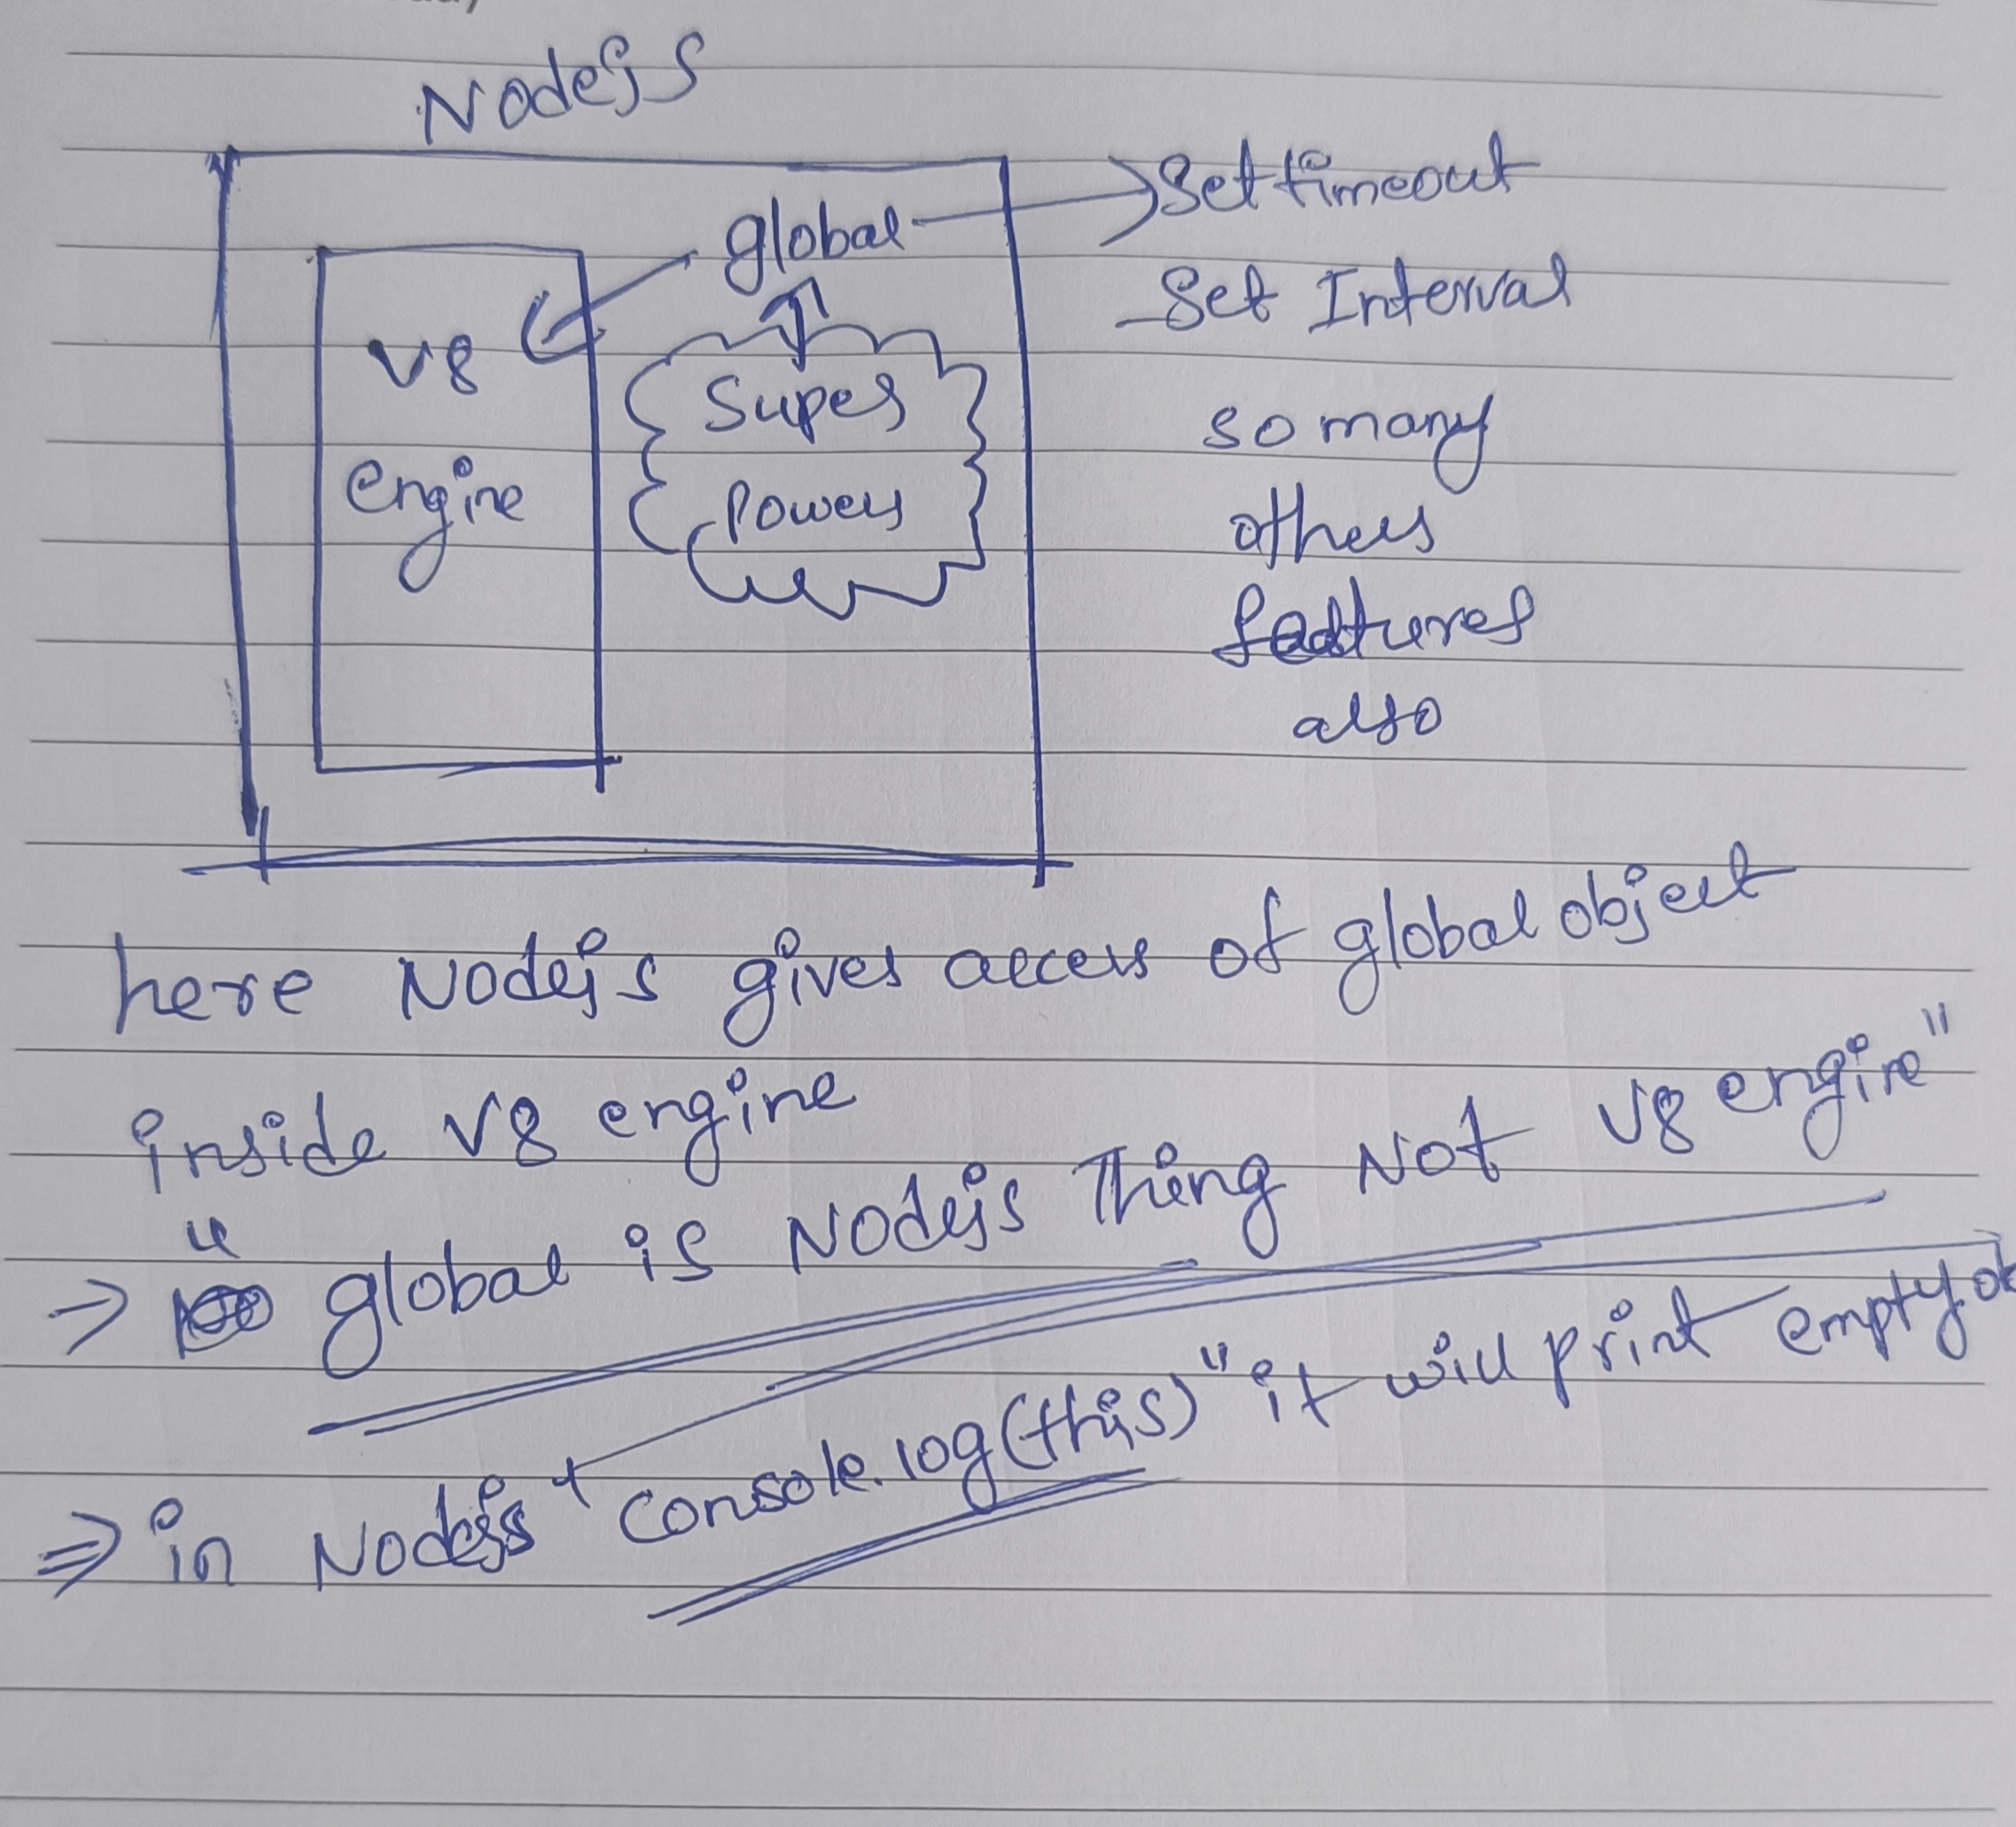 Nodejs
global → Settimeout
- Set Interval
V8
engine
Super
Powers
so many
others
features
also
here Nodejs gives access of global object
inside V8 engine
→ " global is Nodejs Thing Not V8 engine"
⇒ in Nodejs " console.log(this)" it will print empty